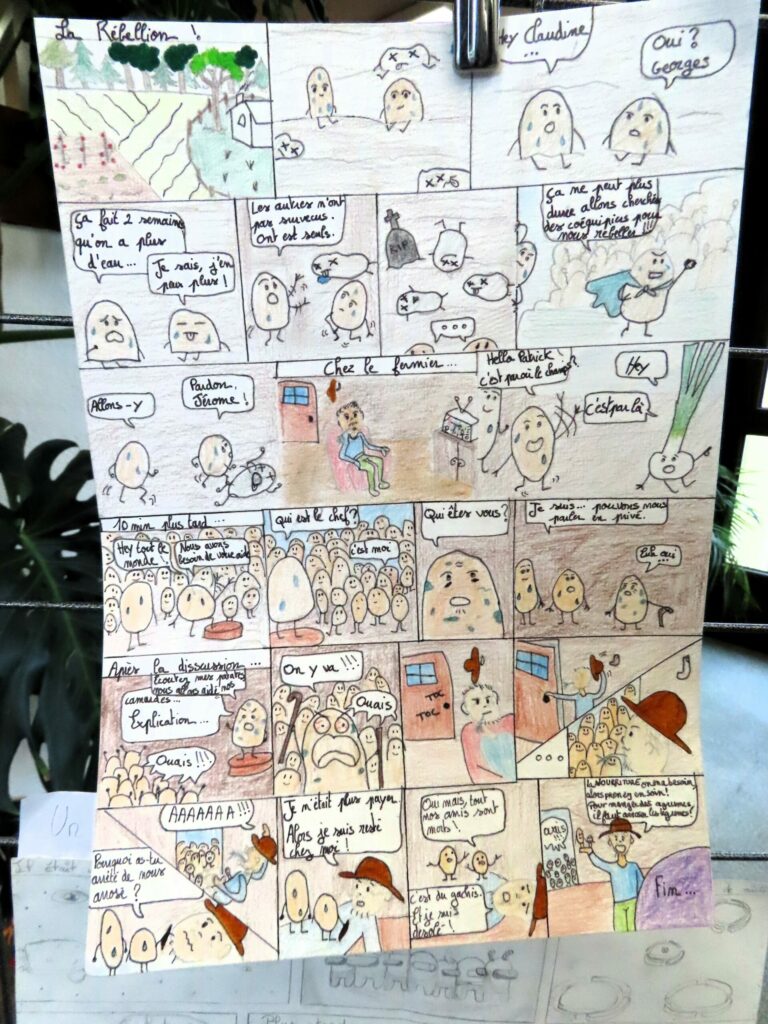 La Rébellion !.
Hey Claudine
...
Oui ?
Georges
ça fait 2 semaine
qu'on a plus
d'eau...
Je sais, j'en
peux plus !
Les autres n'ont
pas survecus.
Ont est seuls.
RIP
...
ça ne peut plus
durer allons cherchés
des coéquipiers pour
nous rebelles !!!
Allons-y
Pardon,
Jérome !
Chez le fermier...
Hello Patrick !
c'est par où le champs ?
Hey
c'est par là
10 min plus tard...
Hey tout le
monde !
Nous avons
besoin de votre aide
Qui est le chef ?
c'est moi
Qui êtes vous ?
Je suis... pouvons nous
parler en privé.
oui
Après la disscussion ...
Ecoutez mes patates
nous allons aidé nos
camarades...
Explication...
Ouais !!!
On y va !!!
Ouais
TOC
TOC
...
AAAAAAA !!!
Pourquoi as-tu
arrêté de nous
arrosé ?
Je n'était plus payer
Alors je suis resté
chez moi !
Oui mais, tout
nos amis sont
morts !
c'est du gachis.
Et je suis
désolé !
OUAIS !!
La NOURRITURE on en a besoin,
alors prenez en soin !
Pour manger des agrumes,
il faut arroser les légumes !
Fin...
Un
Il était